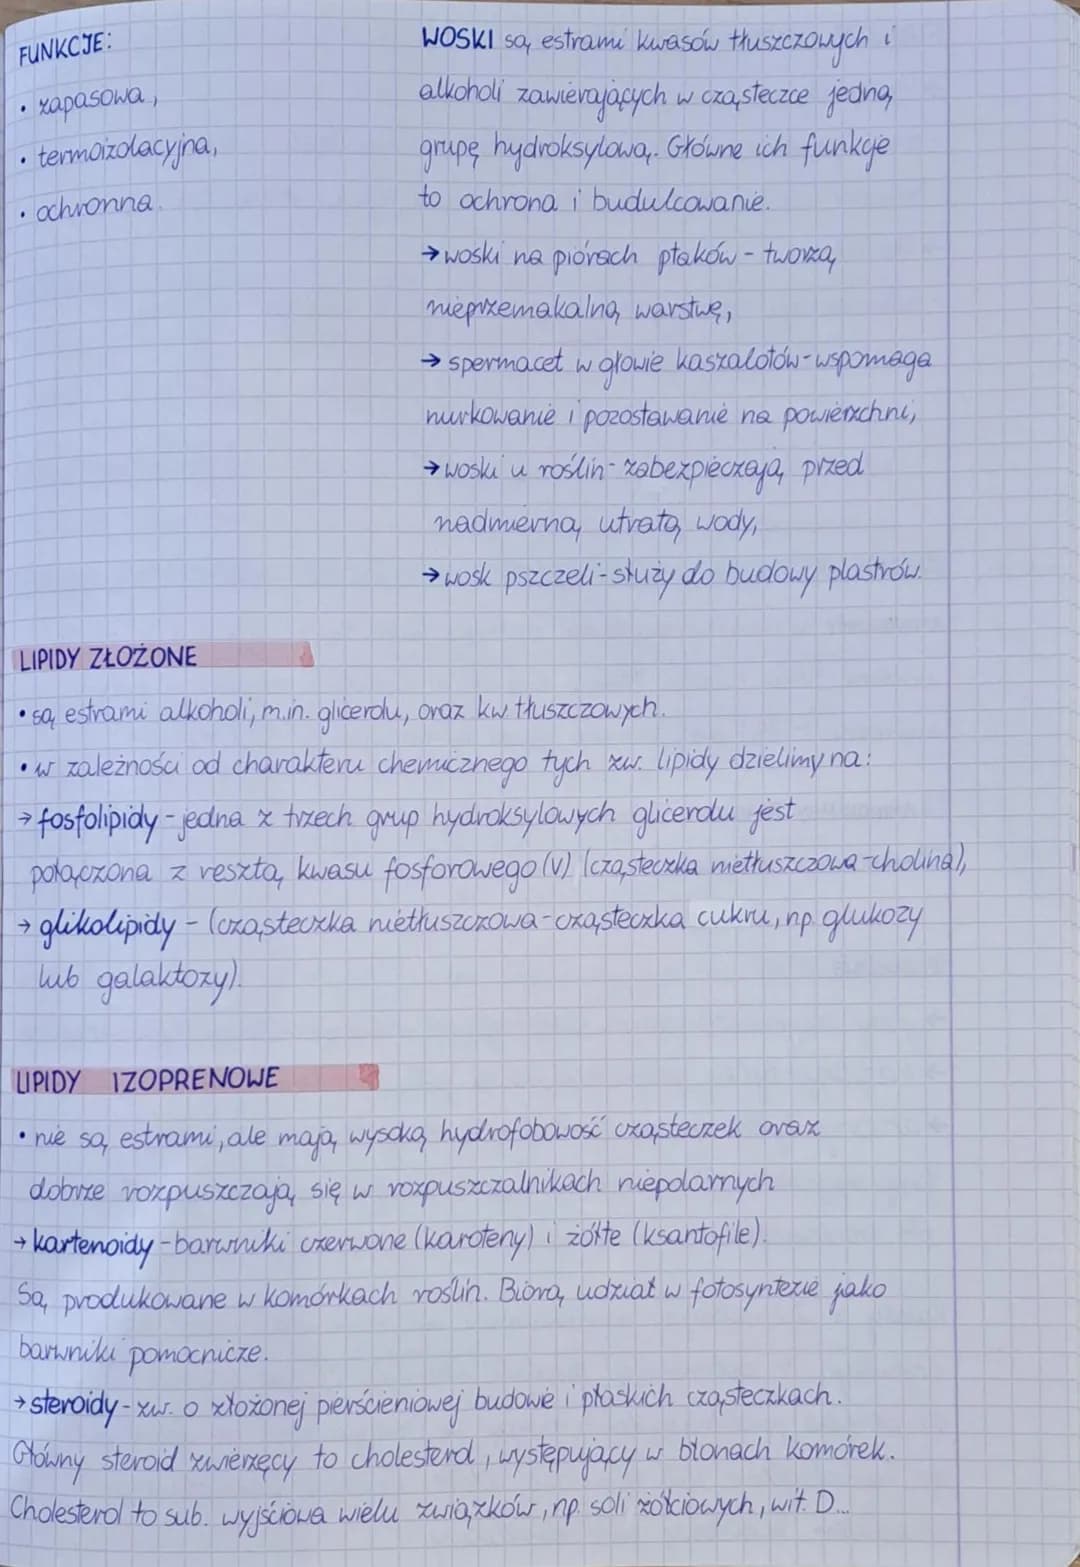 FUNKCJE:
• zapasowa,
• termoizolacyjna,
• ochronna.
WOSKI są estrami kwasów tłuszczowych i
alkoholi zawierających w cząsteczce jedną
grupę hydroksylową. Główne ich funkcje
to ochrona i budulcowanie.
→ woski na piórach ptaków - tworzą
nieprzemakalną warstwę,
→ spermacet w głowie kaszalotów - wspomaga
nurkowanie i pozostawanie na powierzchni,
→ woski u roślin - zabezpieczają przed
nadmierną utratą wody,
→ wosk pszczeli - służy do budowy plastrów.
LIPIDY ZŁOŻONE
• są estrami alkoholi, m.in. glicerolu, oraz kw tłuszczowych.
• w zależności od charakteru chemicznego tych zw. lipidy dzielimy na:
→ fosfolipidy - jedna z trzech grup hydroksylowych glicerolu jest
połączona z resztą kwasu fosforowego (V) (cząsteczka nietłuszczowa - cholina),
→ glikolipidy - (cząsteczka nietłuszczowa - cząsteczka cukru, np. glukozy
lub galaktozy).
LIPIDY IZOPRENOWE
• nie są estrami, ale mają wysoką hydrofobowość cząsteczek oraz
dobrze rozpuszczają się w rozpuszczalnikach niepolarnych
→ kartenoidy - barwniki czerwone (karoteny) i żółte (ksantofile).
Są produkowane w komórkach roślin. Biorą udział w fotosyntezie jako
barwniki pomocnicze.
→ steroidy - zw. o złożonej pierścieniowej budowie i płaskich cząsteczkach.
Główny steroid zwierzęcy to cholesterol, występujący w błonach komórek.
Cholesterol to sub. wyjściowa wielu związków, np. soli żółciowych, wit. D...